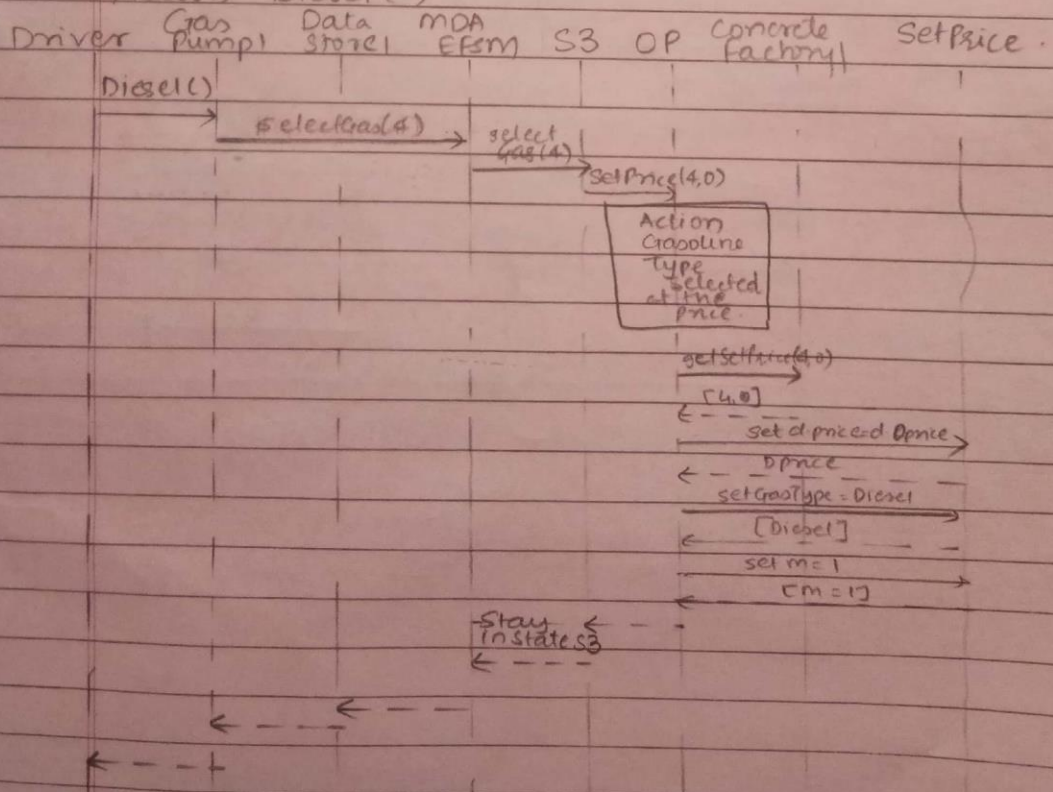 Driver
Gas
Pump1
Data
Store1
MDA
EFSM
S3
OP
Concrete
Factory1
SetPrice.
Diesel()
selectGas(4)
select
Gas(4)
SetPrice(4,0)
Action
Gasoline
Type
selected
at the
price.
getSetPrice(4,0)
[4,0]
set d.price=d Dprice
Dprice
setGasType = Diesel
[Diesel]
set m=1
[m=1]
Stay
in state S3